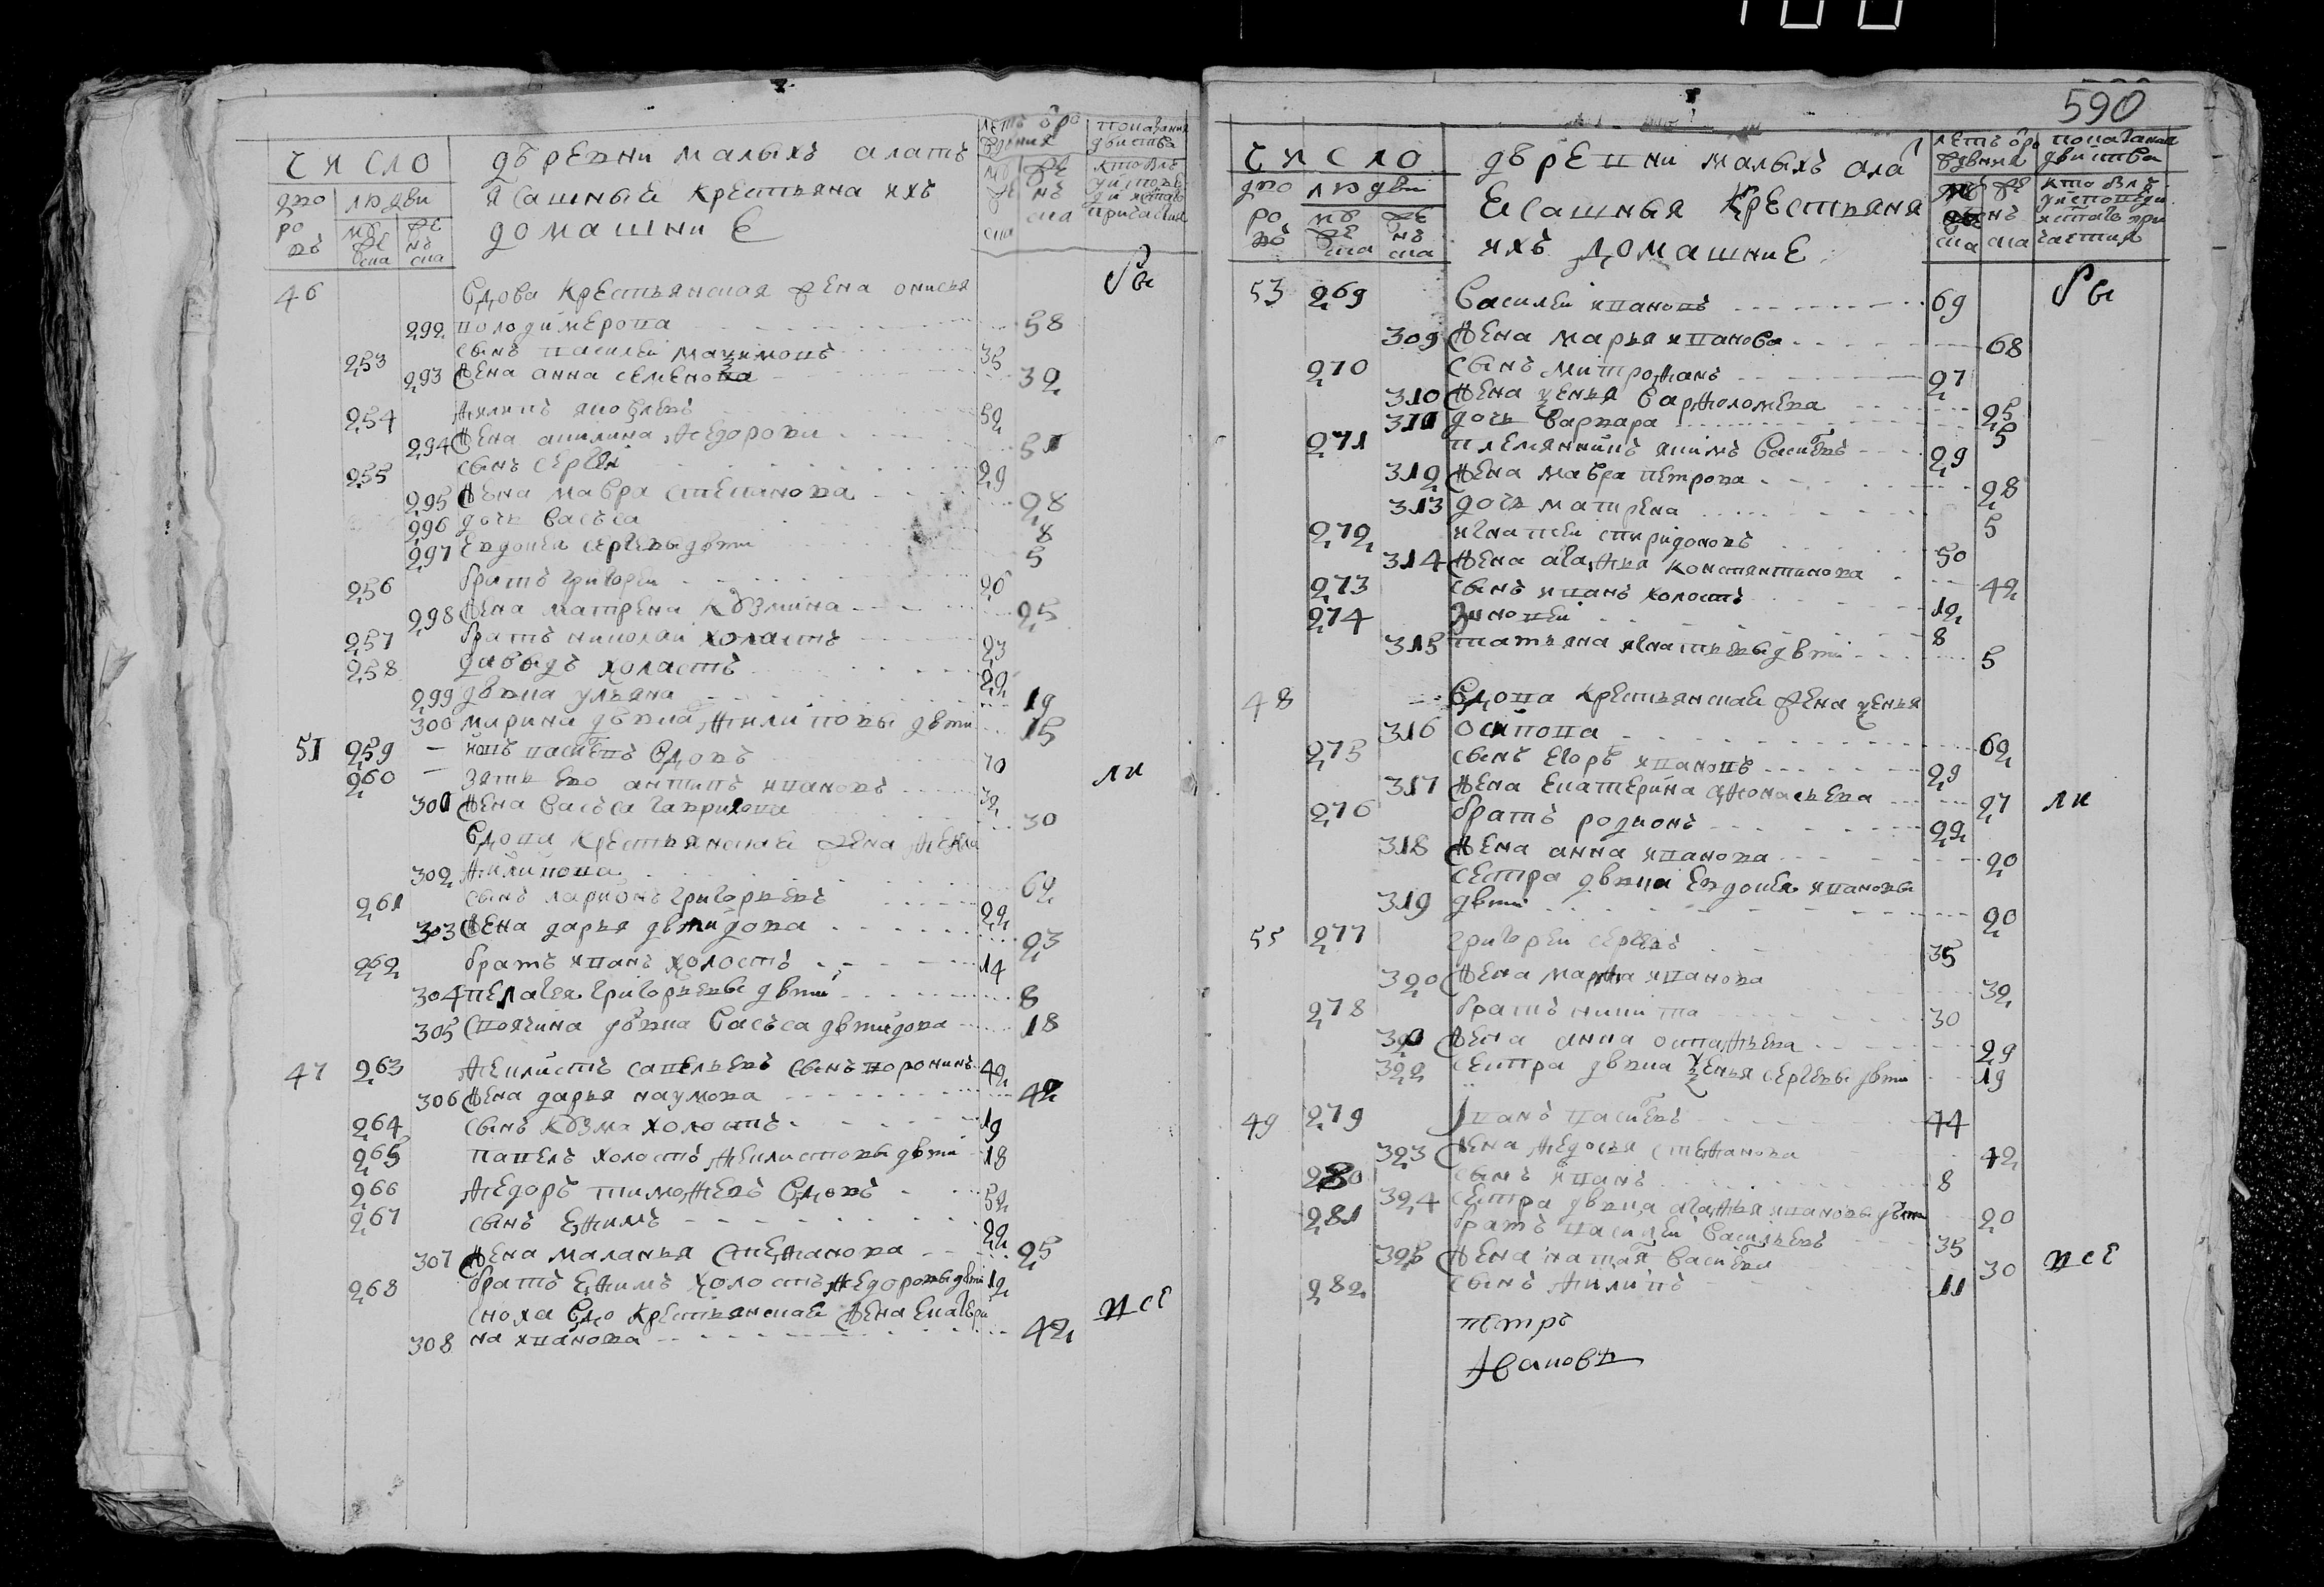 число
дво
ро
въ
людви
му
же
ска
же
нъ
ска
деревни малыхъ алатъ
ясашныя крестьяна ихъ
домашние
летъ о ро
показания
действа
46
вдова крестьянская жена онисья
292 володимерова 58
253 сынъ василей максимовъ 35
293 жена анна семенова 32
254 филипъ яковлевъ 52
294 жена акилина федорова 51
255 сынъ сергей 29
295 жена мавра степанова 28
296 дочь васъса 8
297 евдокея сергеевы дети 5
256 братъ григорей 26
298 жена матрена кузмина 25
257 братъ николай холастъ 23
258 давыдъ холастъ 22
299 девка ульяна 19
300 марина девка филиповы дети 15
51 259 васильевъ вдовъ 70
260 зять ево антипъ ивановъ 32 ли
301 жена васъса гаврилова 30
вдова крестьянская жена фекла
302 филипова 62
261 сынъ ларионъ григорьевъ 22
303 жена дарья демидова 23
262 братъ иванъ холостъ 14
304 пелагея григорьевы дети 8
305 своячина девка васъса демидова 18
47 263 феклистъ савельевъ сынъ воронинъ 42
306 жена дарья наумова 42
264 сынъ кузма холостъ 19
265 павелъ холостъ феклистовы дети 18
266 федоръ тимофеевъ вдовъ 52
267 сынъ ефимъ 22
307 жена маланья стефанова 25
268 братъ ефимъ холостъ федоровы дети 12
сноха вдо крестьянская жена екатери все
308 на иванова 42
590
число
дво
ро
въ
людви
му
же
ска
же
нъ
ска
деревни малыхъ ала
ясашныя крестьяня
ихъ домашние
летъ о ро
показания
действа
53 269 василей ивановъ 69
309 жена марья иванова 68
270 сынъ митрофанъ 27
310 жена ксенья варфоломева 25
311 дочь варвара 5
271 племянникъ якимъ васильевъ 29
312 жена мавра петрова 28
313 дочь матрена 5
272 игнатей спиридоновъ 50
314 жена агафья константинова 42
273 сынъ иванъ холостъ 12
274 зиновей 8
315 татьяна игнатьевы дети 5
48 вдова крестьянская жена ксенья
316 осипова 62
275 сынъ егоръ ивановъ 29
317 жена екатерина афонасьева 27 ли
276 братъ родионъ 22
318 жена анна иванова 20
сестра девка евдокея ивановы
319 дети 20
55 277 григорей сергеевъ 35
320 жена марфа иванова 32
278 братъ никита 30
321 жена анна остафьева 29
322 сестра девка ксенья сергеевы дети 19
49 279 иванъ васильевъ 44
323 жена федосья стефанова 42
280 сынъ иванъ 8
324 сестра девка агафья ивановы дети 20
281 братъ василей васильевъ 35
325 жена наталья васильева 30 все
282 сынъ филипъ 11
петръ
Ивановъ